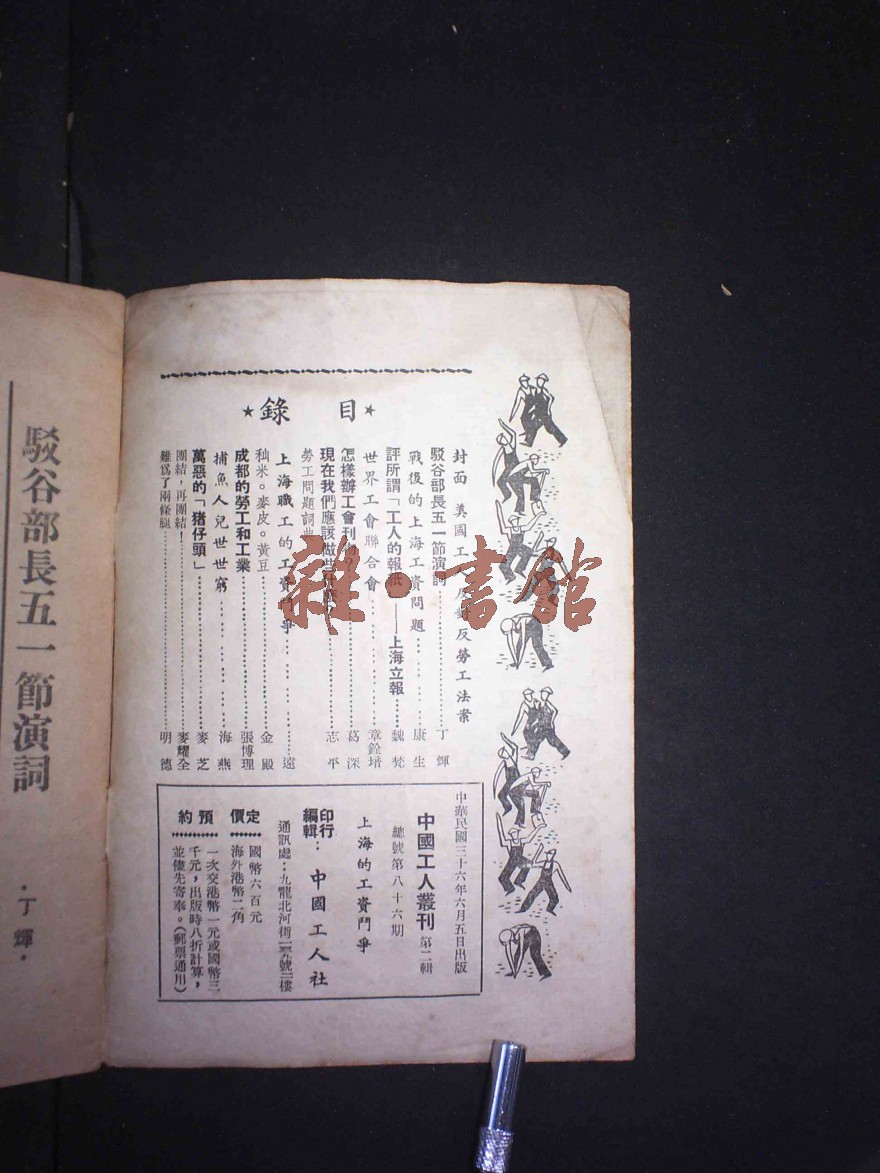 ★目錄★
封面 美國工
反勞工法案
駁谷部長五一節演詞 丁輝
戰後的上海工資問題 康生
評所謂「工人的報紙」——上海立報 魏梵
世界工會聯合會 章銓培
怎樣辦工會刊物? 葛深
現在我們應該做些 志平
勞工問題詞典
上海職工的工資鬥爭 遠
秈米。麥皮。黃豆 金殿
成都的勞工和工業 張博理
捕魚人兒世世窮 海燕
萬惡的「猪仔頭」 麥芝
團結,再團結! 麥耀全
難爲了兩條腿 明德
中華民國三十六年六月五日出版
中國工人叢刊 第二輯
總號第八十六期
上海的工資鬥爭
編輯印行:中國工人社
通訊處:九龍北河街
號三樓
定價
國幣六百元
海外港幣二角
預約
一次交港幣一元或國幣三
千元,出版時八折計算,
並儘先寄奉。(郵票通用)
駁谷部長五一節演詞
·丁輝·
雜·書館